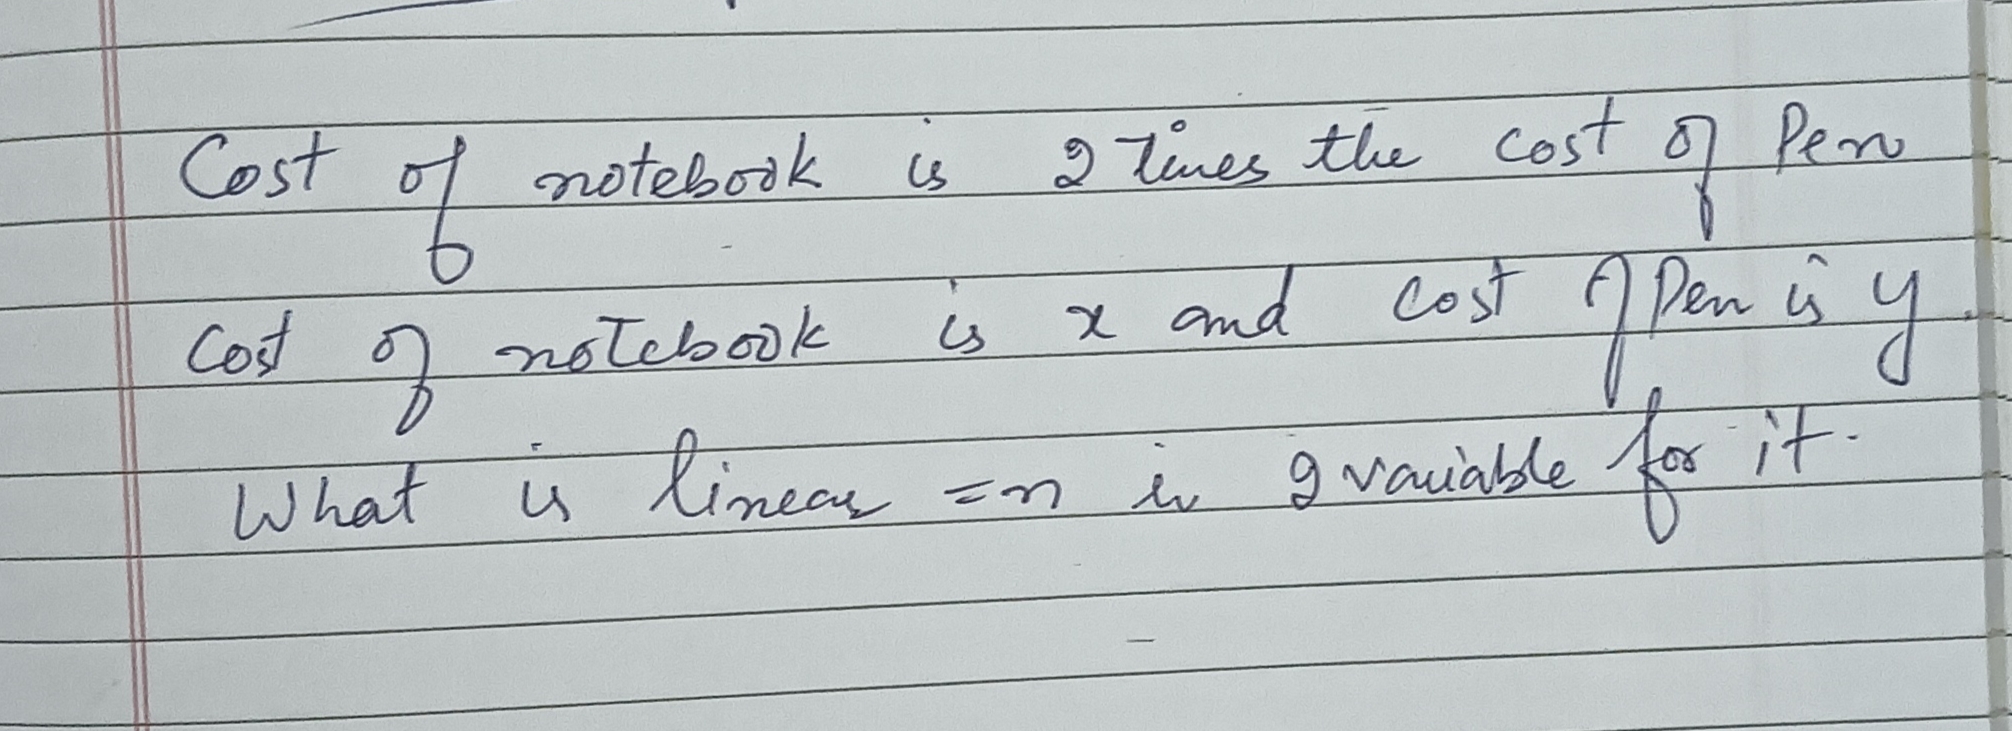 Cost of notebook is 2 times the cost of Pen
Cost of notebook is x and cost of Pen is y.
What is linear =n in 2 variable for it.